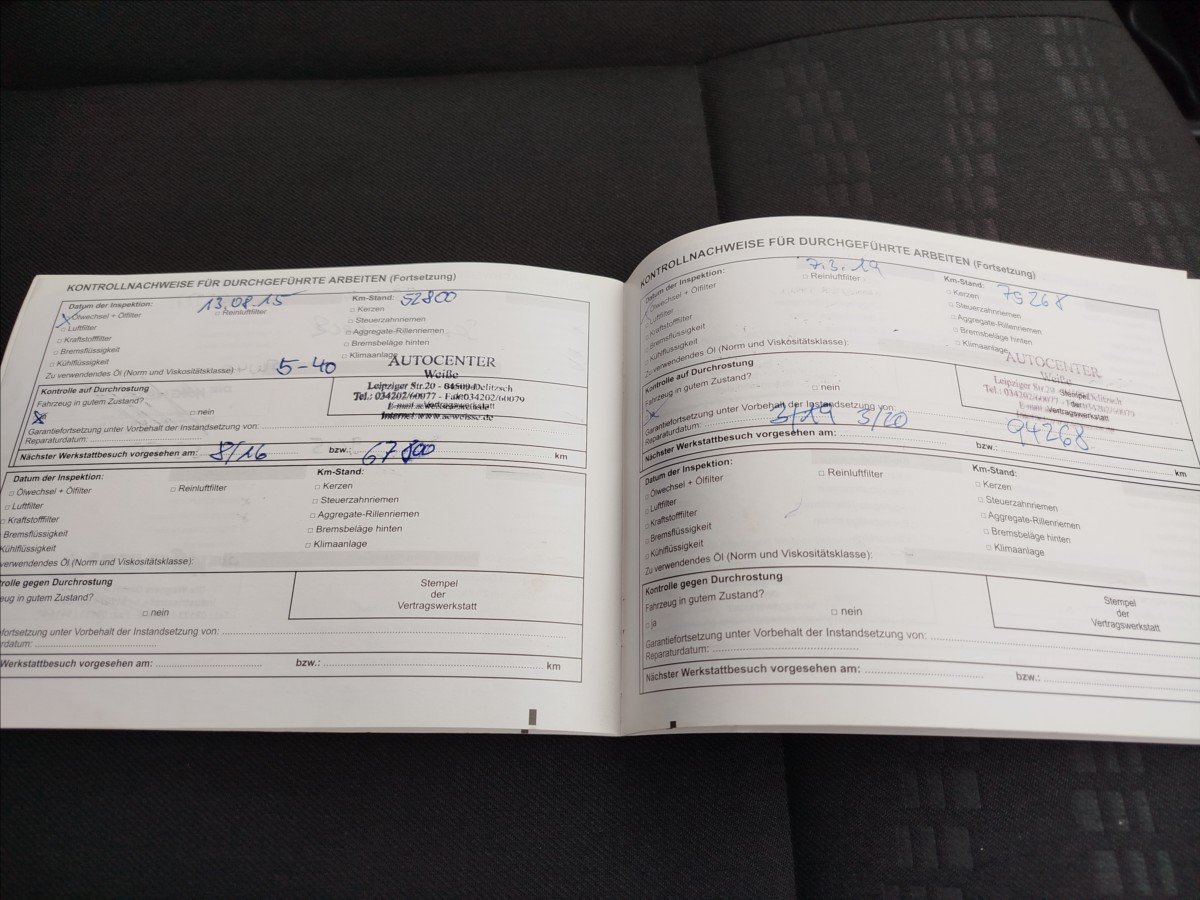 KONTROLLNACHWEISE FÜR DURCHGEFÜHRTE ARBEITEN (Fortsetzung)
Datum der Inspektion: 13.08.15 Km-Stand: 52800
Ölwechsel + Ölfilter Reinluftfilter Kerzen
Luftfilter Steuerzahnriemen
Kraftstofffilter Aggregate-Rillenriemen
Bremsflüssigkeit Bremsbeläge hinten
Kühlflüssigkeit Klimaanlage
Zu verwendendes Öl (Norm und Viskositätsklasse): 5-40
AUTOCENTER
Weiße
Leipziger Str.20 - 04509 Delitzsch
Tel.: 034202/60077 - Fax: 034202/60079
Kontrolle auf Durchrostung
Fahrzeug in gutem Zustand?
nein
Garantiefortsetzung unter Vorbehalt der Instandsetzung von:
Reparaturdatum:
Nächster Werkstattbesuch vorgesehen am: 8/16 bzw.: 67800 km
Datum der Inspektion: Km-Stand:
Ölwechsel + Ölfilter Reinluftfilter Kerzen
Luftfilter Steuerzahnriemen
Kraftstofffilter Aggregate-Rillenriemen
Bremsflüssigkeit Bremsbeläge hinten
Kühlflüssigkeit Klimaanlage
verwendendes Öl (Norm und Viskositätsklasse):
rolle gegen Durchrostung
zeug in gutem Zustand?
nein
Stempel
der
Vertragswerkstatt
fortsetzung unter Vorbehalt der Instandsetzung von:
rdatum:
Werkstattbesuch vorgesehen am: bzw.: km
KONTROLLNACHWEISE FÜR DURCHGEFÜHRTE ARBEITEN (Fortsetzung)
Datum der Inspektion: 7.3.19 Km-Stand: 79268
Ölwechsel + Ölfilter Reinluftfilter Kerzen
Luftfilter Steuerzahnriemen
Kraftstofffilter Aggregate-Rillenriemen
Bremsflüssigkeit Bremsbeläge hinten
Kühlflüssigkeit Klimaanlage
Zu verwendendes Öl (Norm und Viskositätsklasse):
AUTOCENTER
Weiße
Leipziger Str.20
Tel.: 034202/60077
Stempel
der
Vertragswerkstatt
Kontrolle auf Durchrostung
Fahrzeug in gutem Zustand?
nein
Garantiefortsetzung unter Vorbehalt der Instandsetzung von:
Reparaturdatum:
Nächster Werkstattbesuch vorgesehen am: 3/19 3/20 bzw.: 94268 km
Datum der Inspektion: Km-Stand:
Ölwechsel + Ölfilter Reinluftfilter Kerzen
Luftfilter Steuerzahnriemen
Kraftstofffilter Aggregate-Rillenriemen
Bremsflüssigkeit Bremsbeläge hinten
Kühlflüssigkeit Klimaanlage
Zu verwendendes Öl (Norm und Viskositätsklasse):
Kontrolle gegen Durchrostung
Fahrzeug in gutem Zustand?
ja nein
Stempel
der
Vertragswerkstatt
Garantiefortsetzung unter Vorbehalt der Instandsetzung von:
Reparaturdatum:
Nächster Werkstattbesuch vorgesehen am: bzw.: